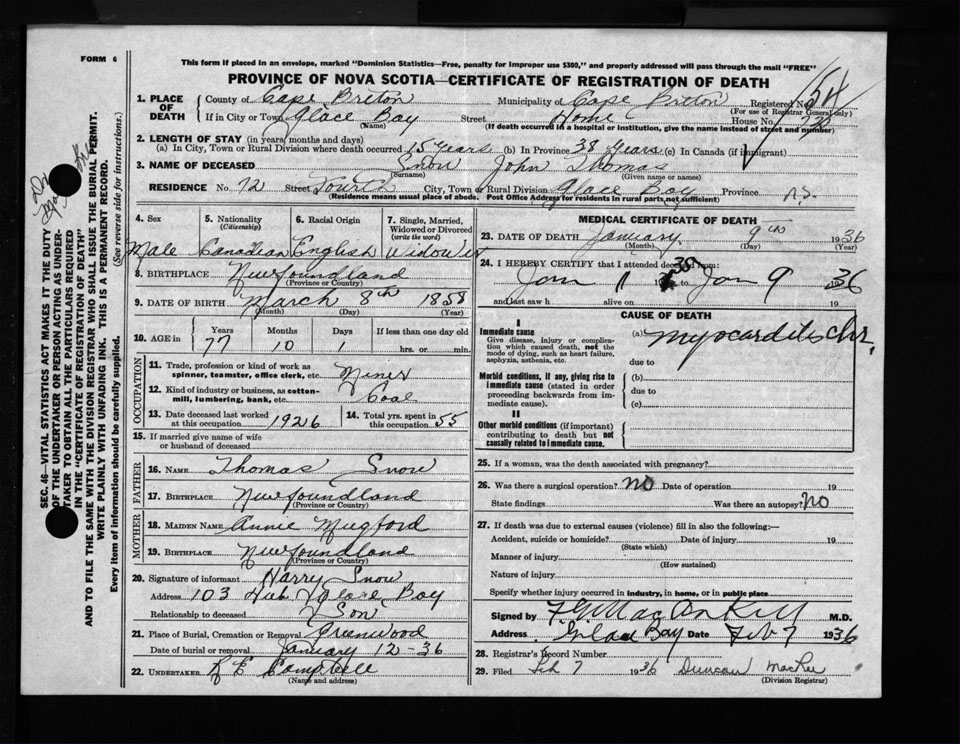 FORM 6
This form if placed in an envelope, marked "Dominion Statistics—Free, penalty for improper use $300," and properly addressed will pass through the mail "FREE"
PROVINCE OF NOVA SCOTIA—CERTIFICATE OF REGISTRATION OF DEATH
SEC. 46—VITAL STATISTICS ACT MAKES IT THE DUTY
OF THE UNDERTAKER OR PERSON ACTING AS UNDER-
TAKER TO OBTAIN ALL THE PARTICULARS REQUIRED
IN THE "CERTIFICATE OF REGISTRATION OF DEATH"
AND TO FILE THE SAME WITH THE DIVISION REGISTRAR WHO SHALL ISSUE THE BURIAL PERMIT.
WRITE PLAINLY WITH UNFADING INK. THIS IS A PERMANENT RECORD.
Every item of information should be carefully supplied. (See reverse side for instructions.)
1. PLACE OF DEATH County of Cape Breton Municipality of Cape Breton Registered No. 54
(For use of Registrar General only)
If in City or Town Glace Bay Street Home House No.
(Name) (If death occurred in a hospital or institution, give the name instead of street and number)
2. LENGTH OF STAY (in years, months and days)
(a) In City, Town or Rural Division where death occurred 15 years (b) In Province 38 years (c) In Canada (if immigrant)
3. NAME OF DECEASED Snow John Thomas
(Surname) (Given name or names)
RESIDENCE No. 72 Street Fourth City, Town or Rural Division Glace Bay Province N.S.
(Residence means usual place of abode. Post Office Address for residents in rural parts not sufficient)
4. Sex 5. Nationality (Citizenship) 6. Racial Origin 7. Single, Married, Widowed or Divorced (write the word)
Male Canadian English Widowed
8. BIRTHPLACE Newfoundland
(Province or Country)
9. DATE OF BIRTH March 8th 1858
(Month) (Day) (Year)
10. AGE IN Years Months Days If less than one day old
77 10 1 hrs. or min.
OCCUPATION
11. Trade, profession or kind of work as spinner, teamster, office clerk, etc. Miner
12. Kind of industry or business, as cotton-mill, lumbering, bank, etc. Coal
13. Date deceased last worked at this occupation 1926 14. Total yrs. spent in this occupation 55
15. If married give name of wife or husband of deceased
FATHER
16. NAME Thomas Snow
17. BIRTHPLACE Newfoundland
(Province or Country)
MOTHER
18. MAIDEN NAME Annie Mugford
19. BIRTHPLACE Newfoundland
(Province or Country)
20. Signature of informant Harry Snow
Address 103 Hub Glace Bay
Relationship to deceased Son
21. Place of Burial, Cremation or Removal Greenwood
Date of burial or removal January 12-36
22. UNDERTAKER R E Campbell
(Name and address)
MEDICAL CERTIFICATE OF DEATH
23. DATE OF DEATH January 9th 1936
(Month) (Day) (Year)
24. I HEREBY CERTIFY that I attended deceased from:
Jan 1 1935 Jan 9 36
and last saw h alive on 19
CAUSE OF DEATH
I
Immediate cause
Give disease, injury or complication which caused death, not the mode of dying, such as heart failure, asphyxia, asthenia, etc.
(a) Myocarditis Chr.
due to
Morbid conditions, if any, giving rise to immediate cause (stated in order proceeding backwards from immediate cause).
(b)
due to
(c)
II
Other morbid conditions (if important) contributing to death but not causally related to immediate cause.
25. If a woman, was the death associated with pregnancy?
26. Was there a surgical operation? No Date of operation 19
State findings Was there an autopsy? No
27. If death was due to external causes (violence) fill in also the following:—
Accident, suicide or homicide? Date of injury 19
(State which)
Manner of injury
(How sustained)
Nature of injury
Specify whether injury occurred in industry, in home, or in public place
Signed by M.D.
Address Glace Bay Date Feb 7 1936
28. Registrar's Record Number
29. Filed Feb 7 1936 Duncan
(Division Registrar)